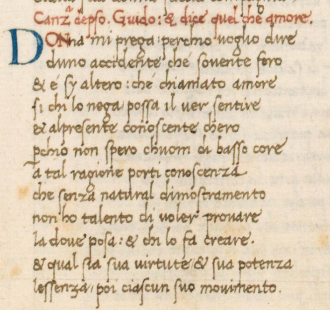 Canz. depso. Guido: & dice quel che amore.
DONna mi prega: perchio voglio dire
duno accidente che sovente fero
& e sy altero: che chiamato amore
si chi lo nega possa il ver sentire
& alpresente conoscente chero
pchio non spero chuom di basso core
a tal ragione porti conoscenza
che senza natural dimostramento
non ho talento di voler provare
la dove posa: & chi lo fa creare.
& qual sia sua virtute & sua potenza
lessenza, poi ciascun suo movimento.